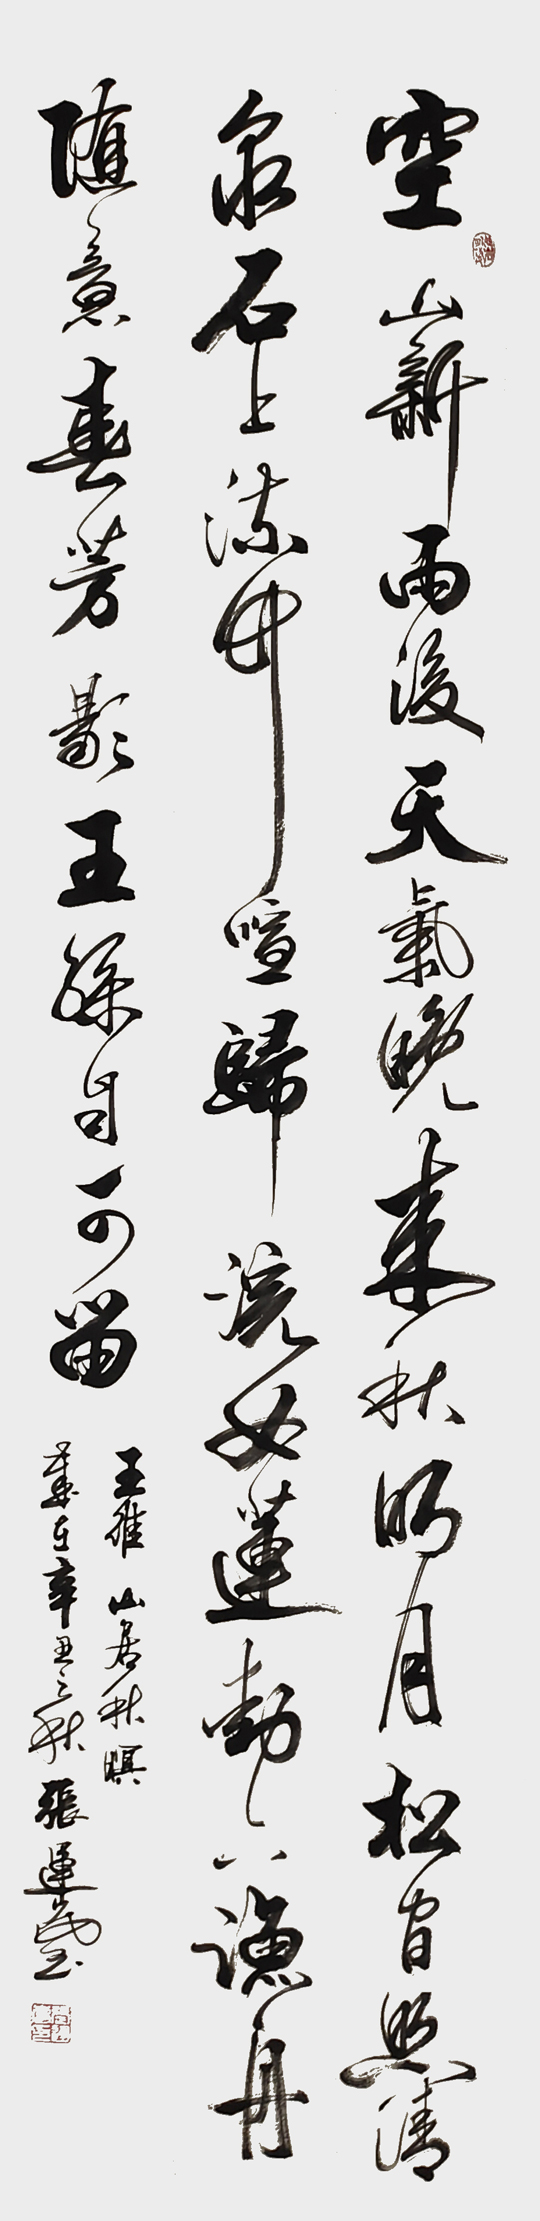 空山新雨後天氣晚來秋明月松間照清
泉石上流竹喧歸浣女蓮動下漁舟
隨意春芳歇王孫自可留
王維山居秋暝
歲在辛丑之秋張運